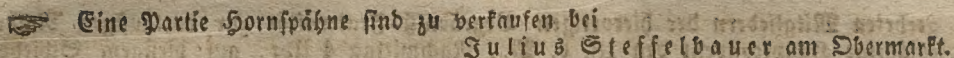 ☞ Eine Partie Hornſpähne ſind zu verkaufen bei
Julius Steffelbauer am Obermarkt.